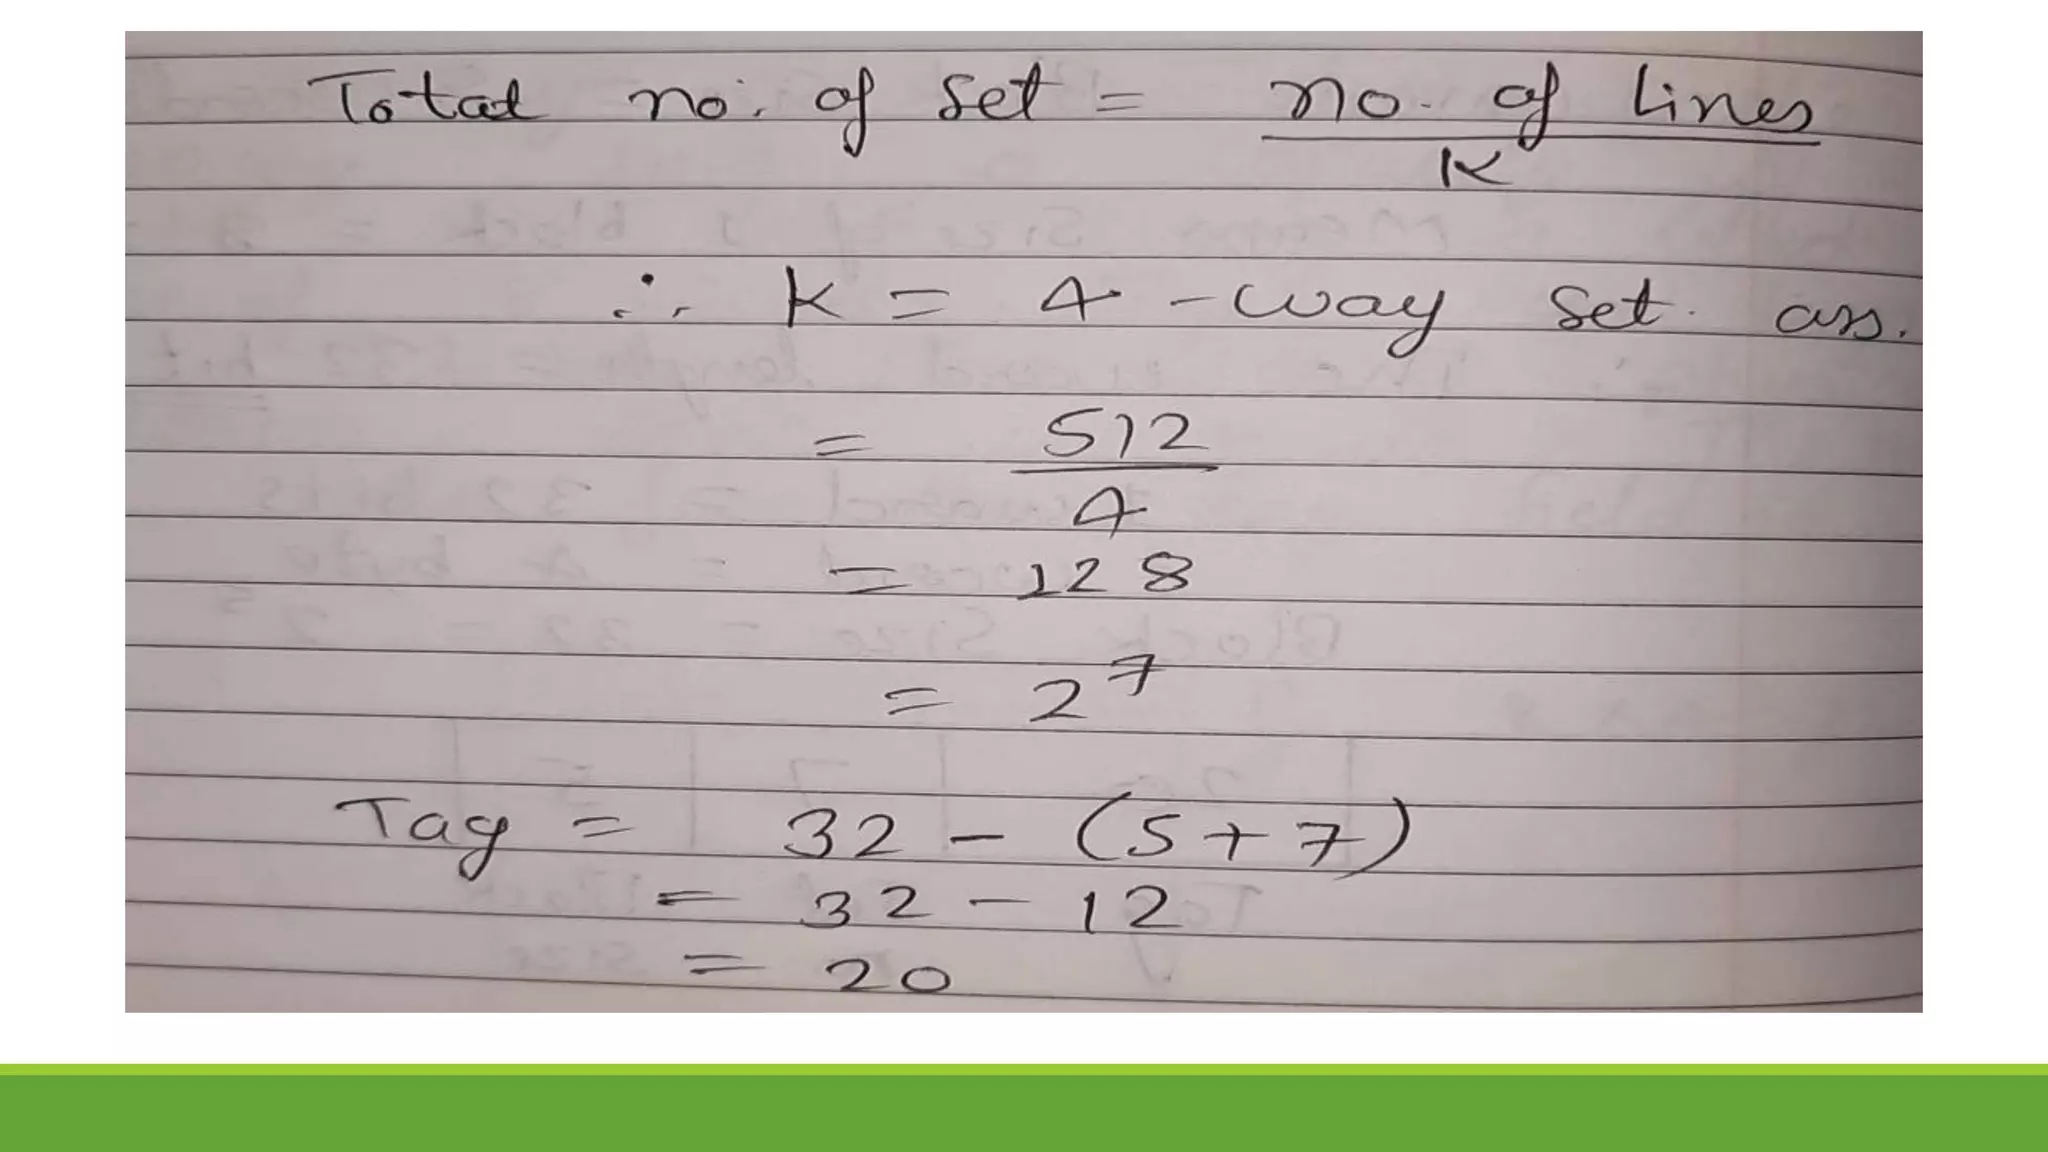 Total no. of set = no. of lines
K
∴ K = 4 - way set ass.
= 512
4
= 128
= 2⁷
Tag = 32 - (5+7)
= 32 - 12
= 20